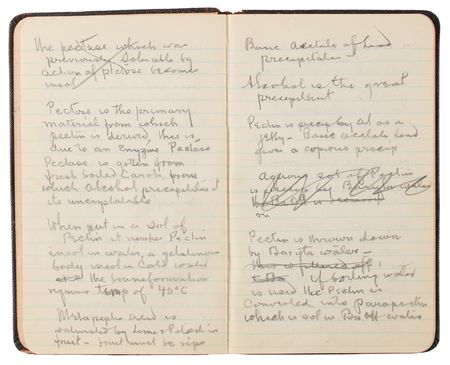 The pectase which was
previously soluable by
action of pectose become
insol
Pectose is the primary
material from which
pectin is derived, this is
due to an enzyme Pectase
Pectase is gotten from
fresh boiled Carots, from
which Alcohol precipitates it
its uncrystalable
When put in a sol of
Pectin it makes Pectin
insol in water, a gelatinous
body insol in Cold water
the transformation
requires temp of 40°C
Metapeptic acid is
saturated by Lime & Potash in
fruit - fruit must be ripe
Basic acetate of lead
precipitates
Alcohol is the great
precipitent
Pectin is precip by al as a
jelly - Basic acetate lead
gives a copious precip
aqueous sol of Pectin
is by
Pectin is thrown down
by Baryta water -
this is filtered off
if boiling water
is used the Pectin is
Converted into parapectin
which is sol in water